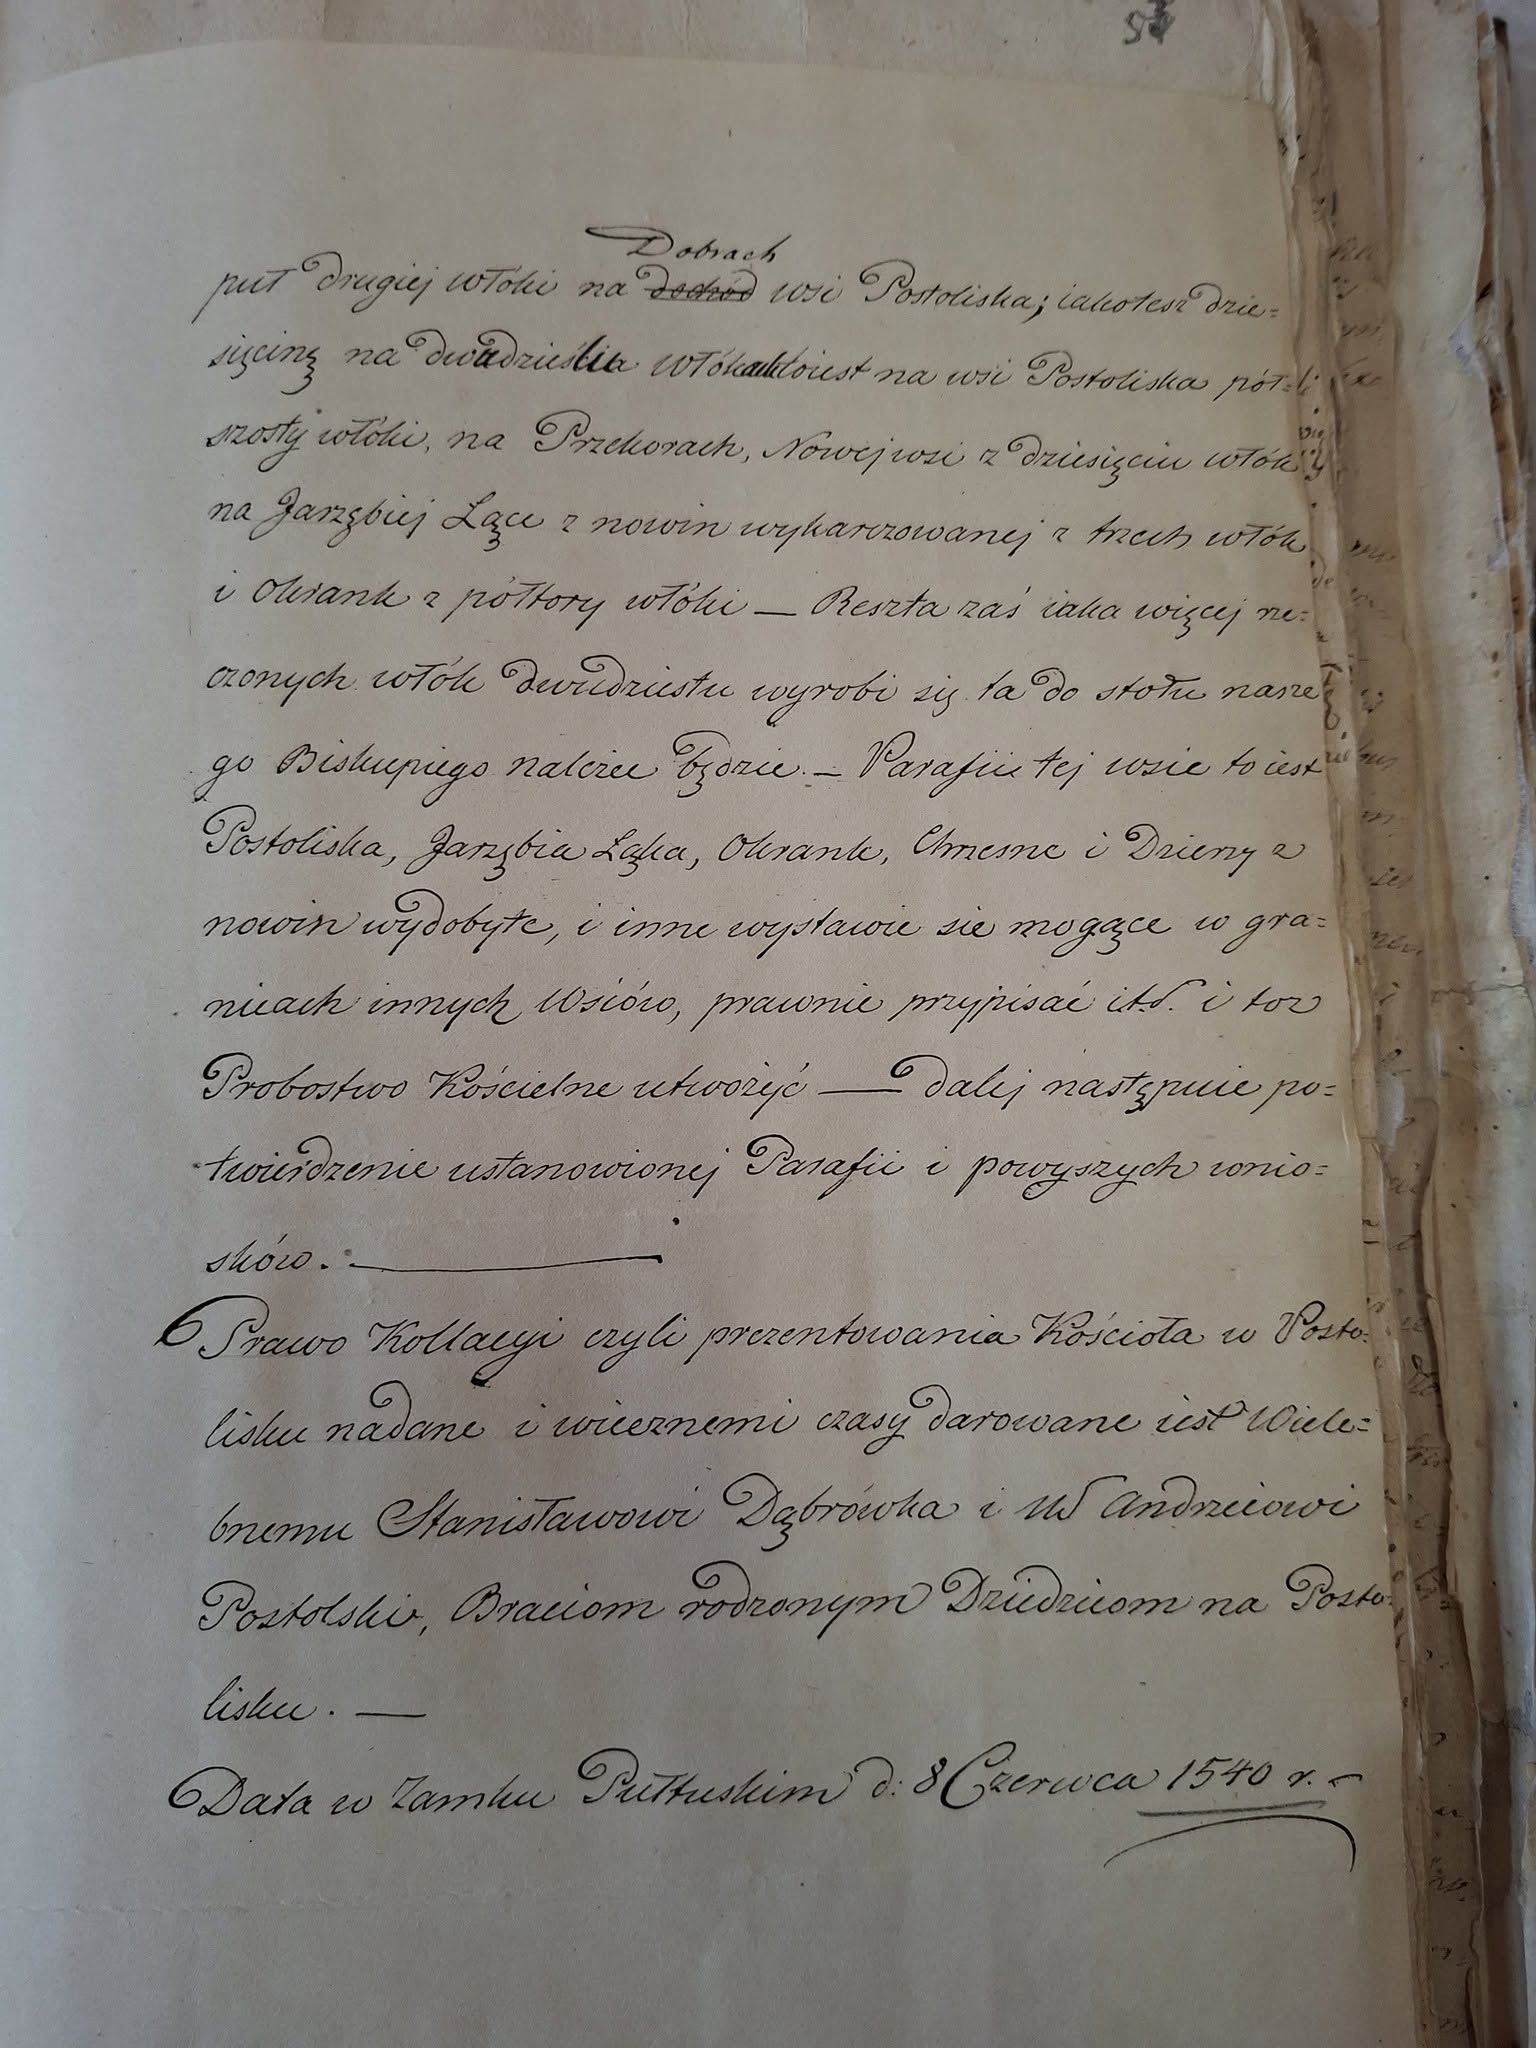 Dobrach
puł drugiej włóki na dochód wsi Postoliska; iakotesz dzie=
sięcinę na dwudziestu włókach to iest na wsi Postoliska pół=
szosty włóki, na Przekorach, Nowej wsi z dziesięciu włók
na Jarzębiej Łące z nowin wykarczowanej z trzech włók
i Okrank z półtory włóki — Reszta zaś iaka więcej rze=
czonych włók dwudziestu wyrobi się ta do stołu nasze
go Biskupiego należec będzie. — Parafii tej wsie to iest
Postoliska, Jarzębia Łąka, Okrank, Chrzesne i Dzierzy z
nowin wydobyte, i inne wystawic sie mogące w gra=
nicach innych Wsiów, prawnie przypisać itd. i toz
Probostwo Kościelne utwożyć — dalej następuie po=
twierdzenie ustanowionej Parafii i powyszych wnio=
sków. —
Prawo Kollacyi czyli prezentowania Kościoła w Posto=
lisku nadane i wiecznemi czasy darowane iest Wiele=
bnemu Stanisławowi Dąbrówka i Ur Andrzeiowi
Postolski, Braciom rodzonym Dziedzicom na Posto=
lisku. —
Data w Zamku Pułtuskim d: 8 Czerwca 1540 r. —